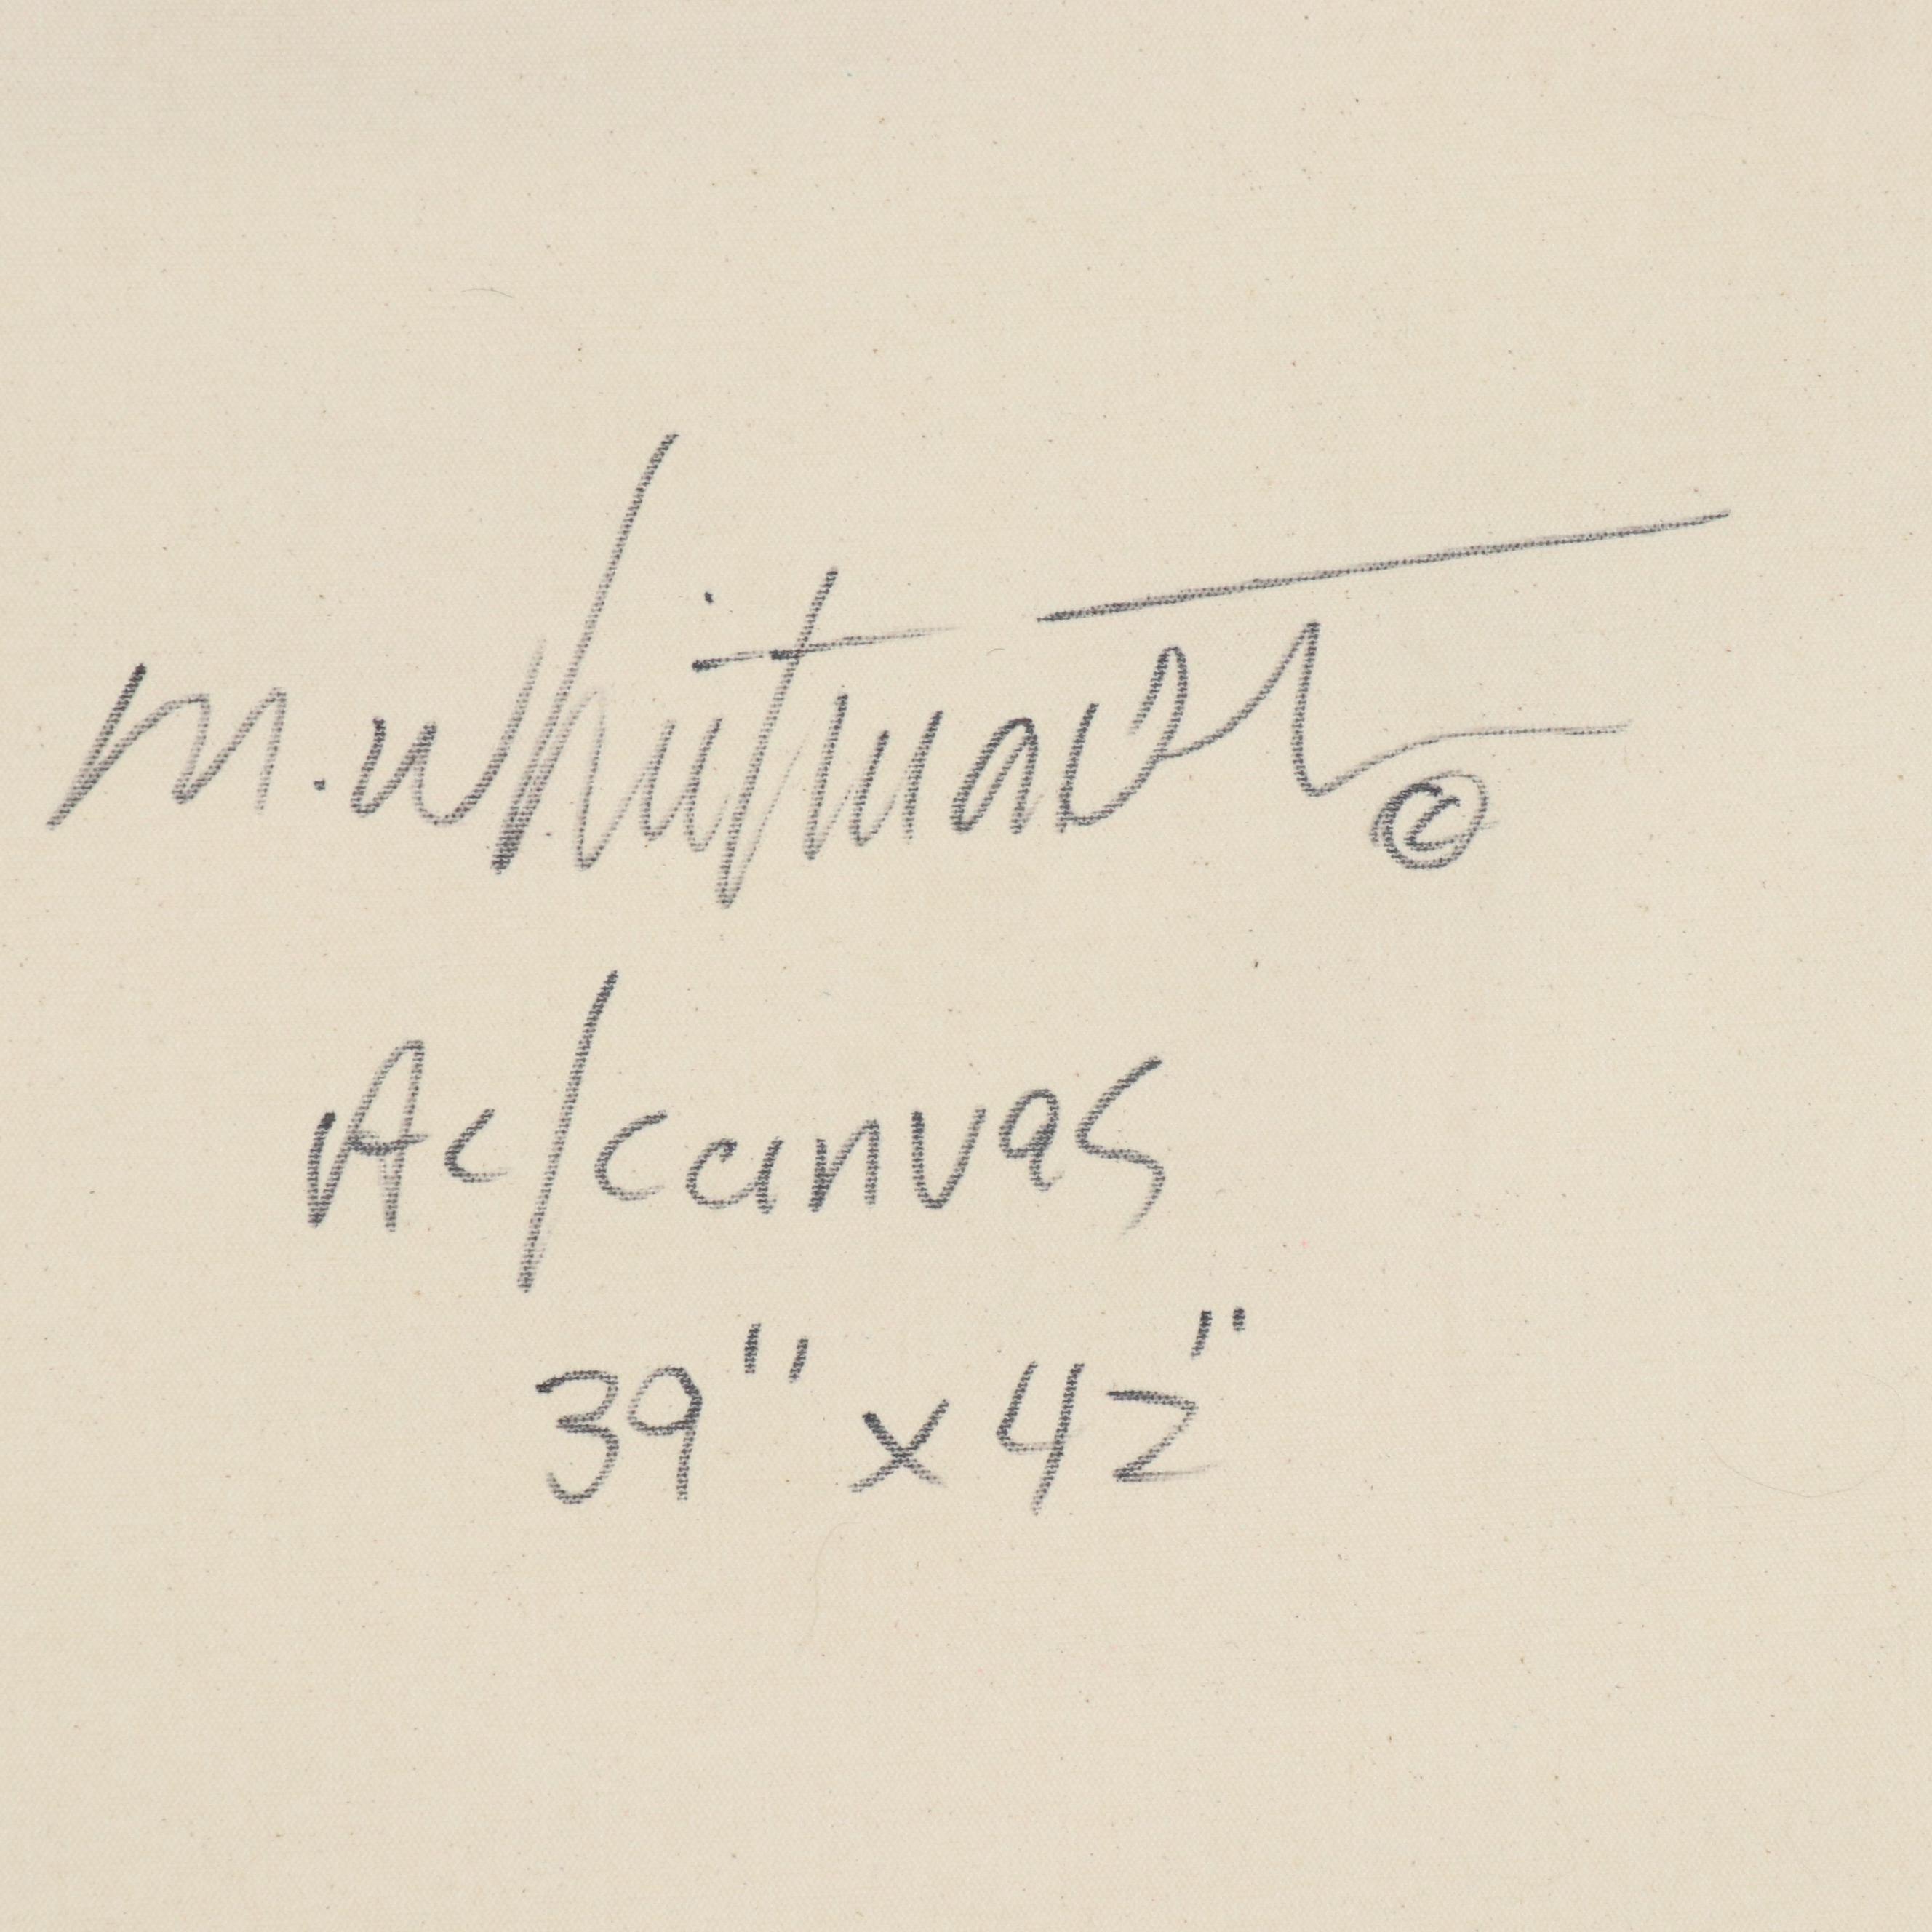 M. Whitmarsh ©
Ac/canvas
39" x 42"